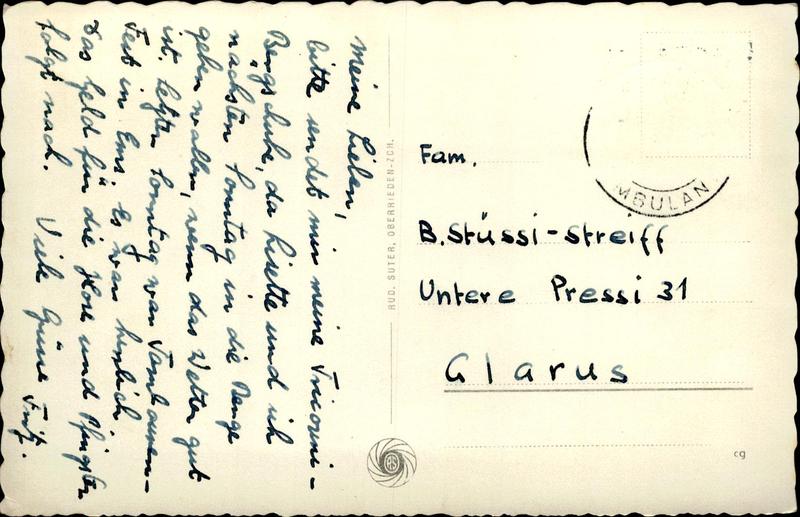 Meine Lieben,
bitte sendet mir meine Tricouni-
Bergschuhe, da Lisette und ich
nächsten Sonntag in die Berge
gehen wollen, wenn das Wetter gut
ist. Letzten Sonntag war Tambouren-
Fest in Ems. Es war herrlich.
Das Geld für die Hose und Pfingsten
folgt nach. Viele Grüsse Fritz.
RUD. SUTER, OBERRIEDEN-ZCH.
RS
MBULAN
Fam.
B. Stüssi-Streiff
Untere Pressi 31
Glarus
cg